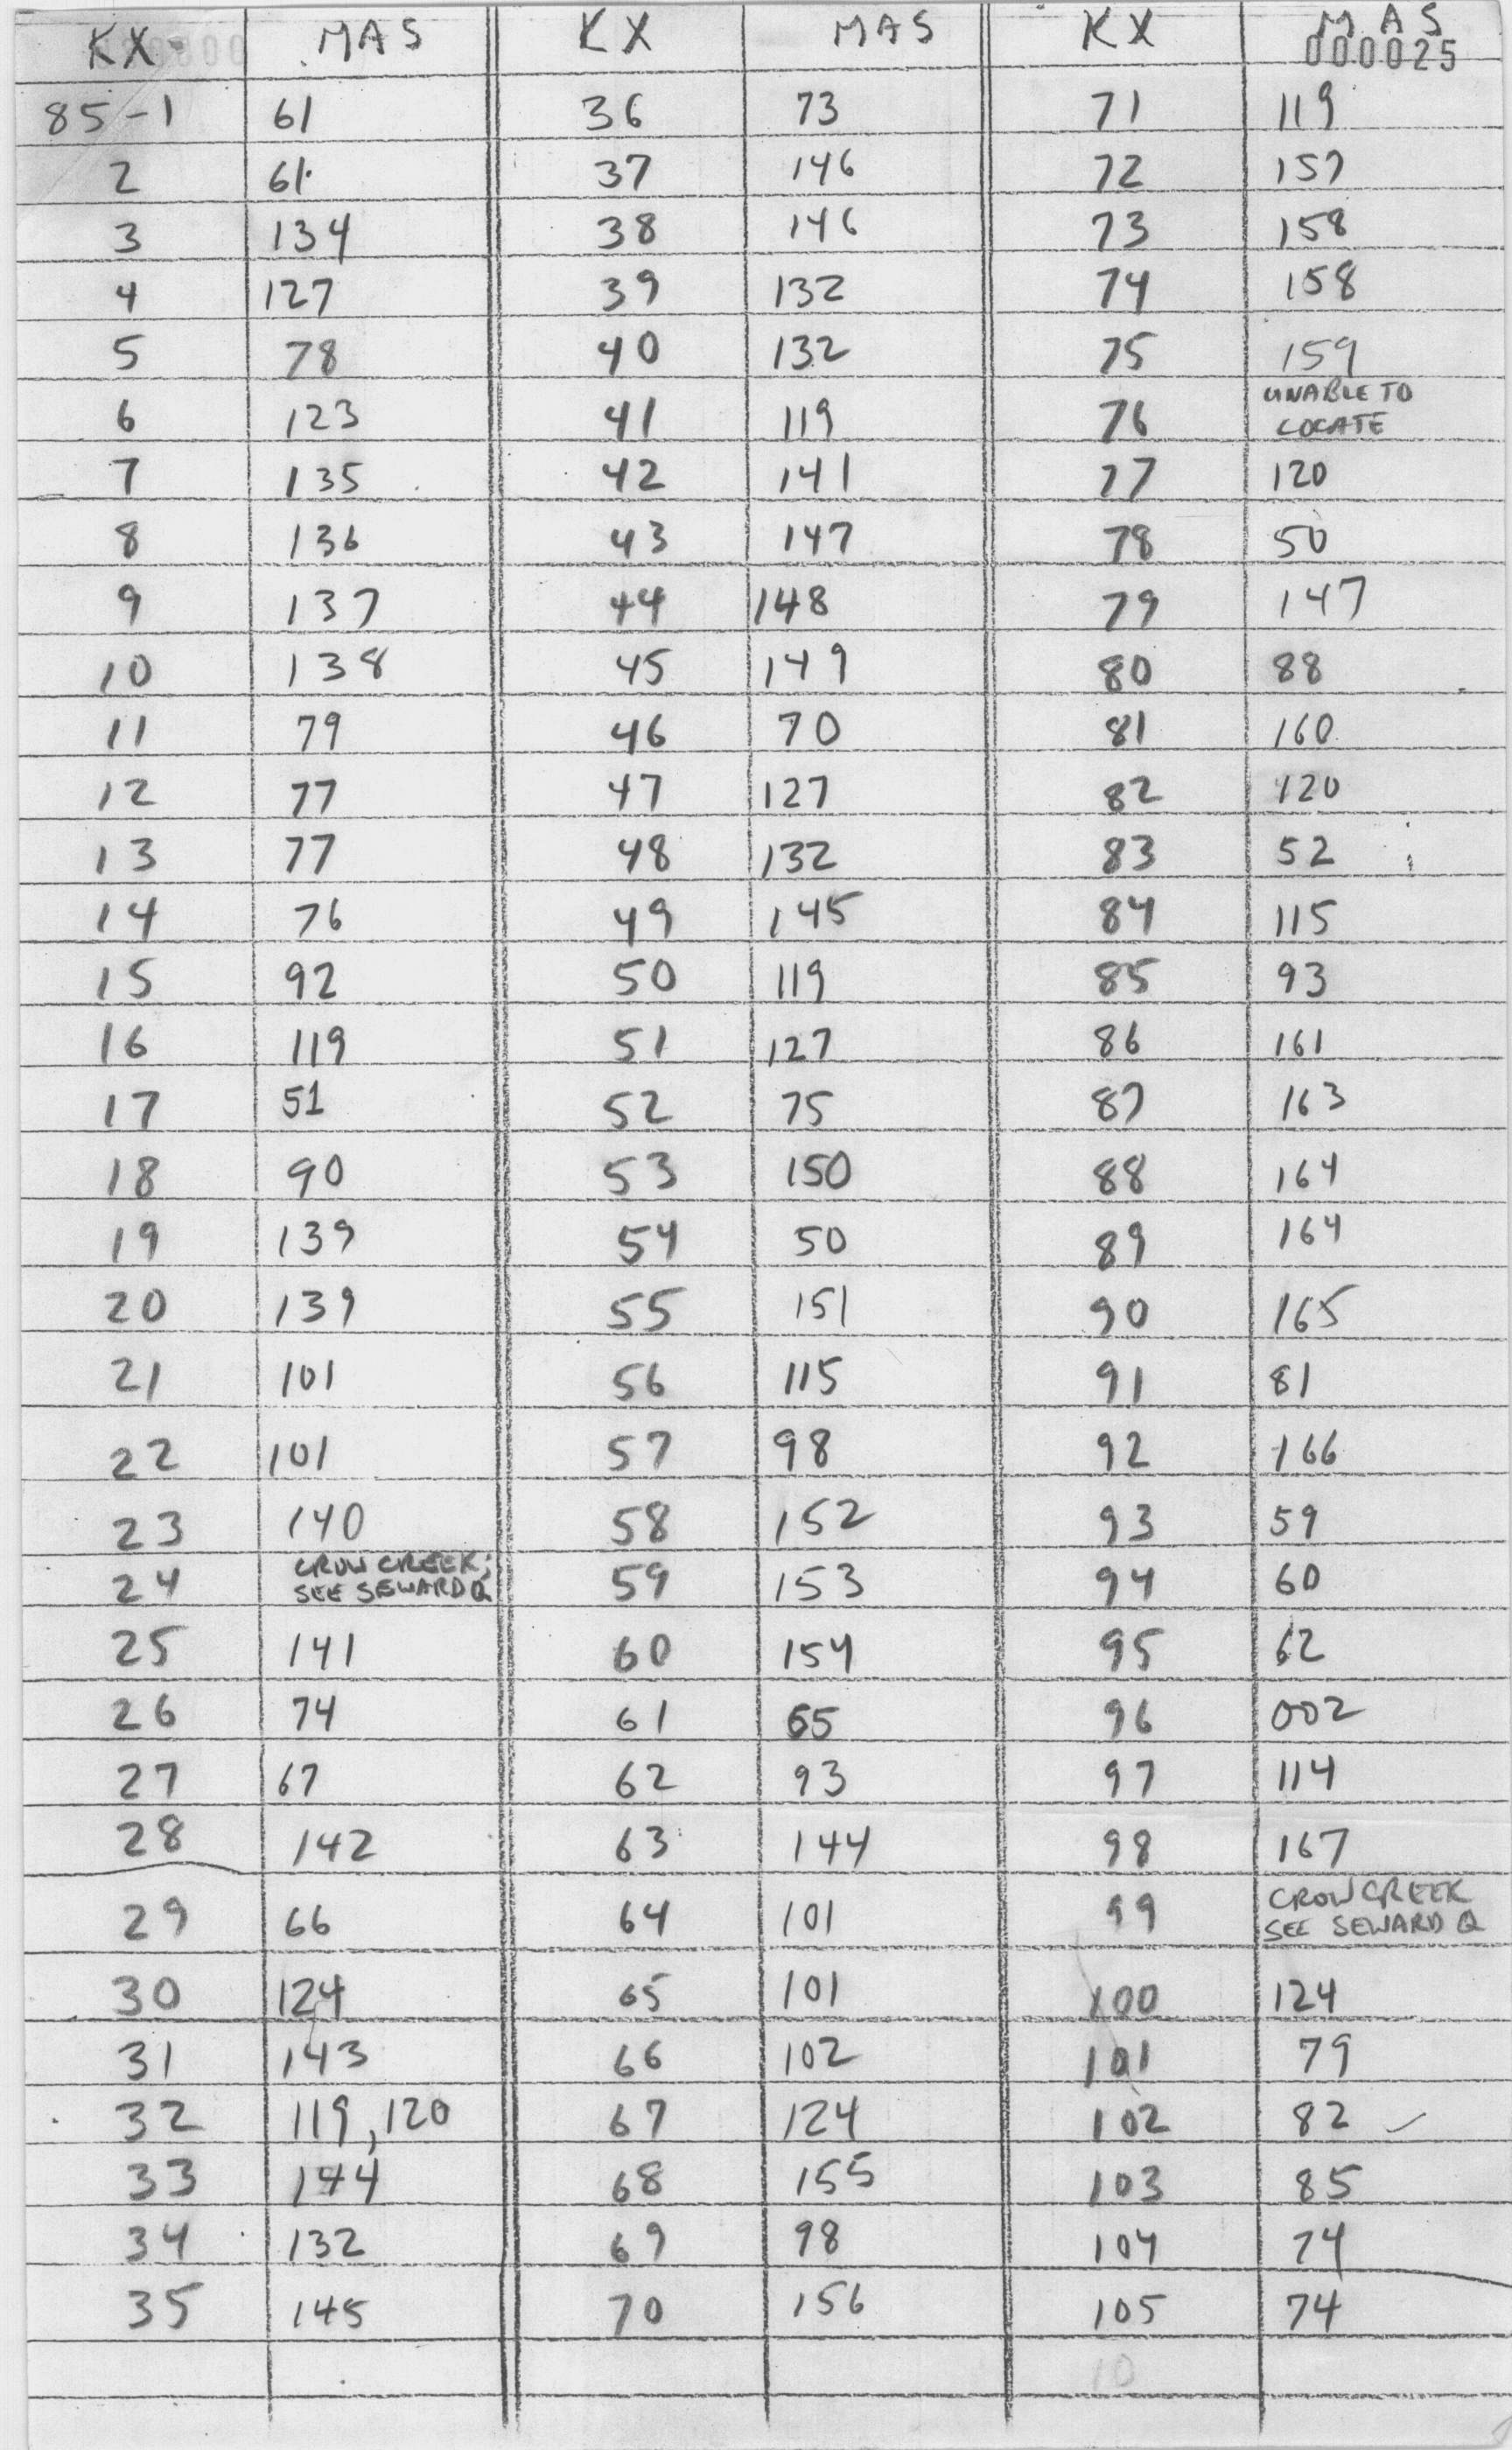 KX MAS KX MAS KX MAS
000025
85-1 61 36 73 71 119
2 61 37 146 72 157
3 134 38 146 73 158
4 127 39 132 74 158
5 78 40 132 75 159
6 123 41 119 76 UNABLE TO LOCATE
7 135 42 141 77 120
8 136 43 147 78 50
9 137 44 148 79 147
10 138 45 149 80 88
11 79 46 70 81 160
12 77 47 127 82 120
13 77 48 132 83 52
14 76 49 145 84 115
15 92 50 119 85 93
16 119 51 127 86 161
17 51 52 75 87 163
18 90 53 150 88 164
19 139 54 50 89 164
20 139 55 151 90 165
21 101 56 115 91 81
22 101 57 98 92 166
23 140 58 152 93 59
24 CROW CREEK; SEE SEWARD Q 59 153 94 60
25 141 60 154 95 62
26 74 61 65 96 002
27 67 62 93 97 114
28 142 63 144 98 167
29 66 64 101 99 CROW CREEK SEE SEWARD Q
30 124 65 101 100 124
31 143 66 102 101 79
32 119, 120 67 124 102 82
33 144 68 155 103 85
34 132 69 98 104 74
35 145 70 156 105 74